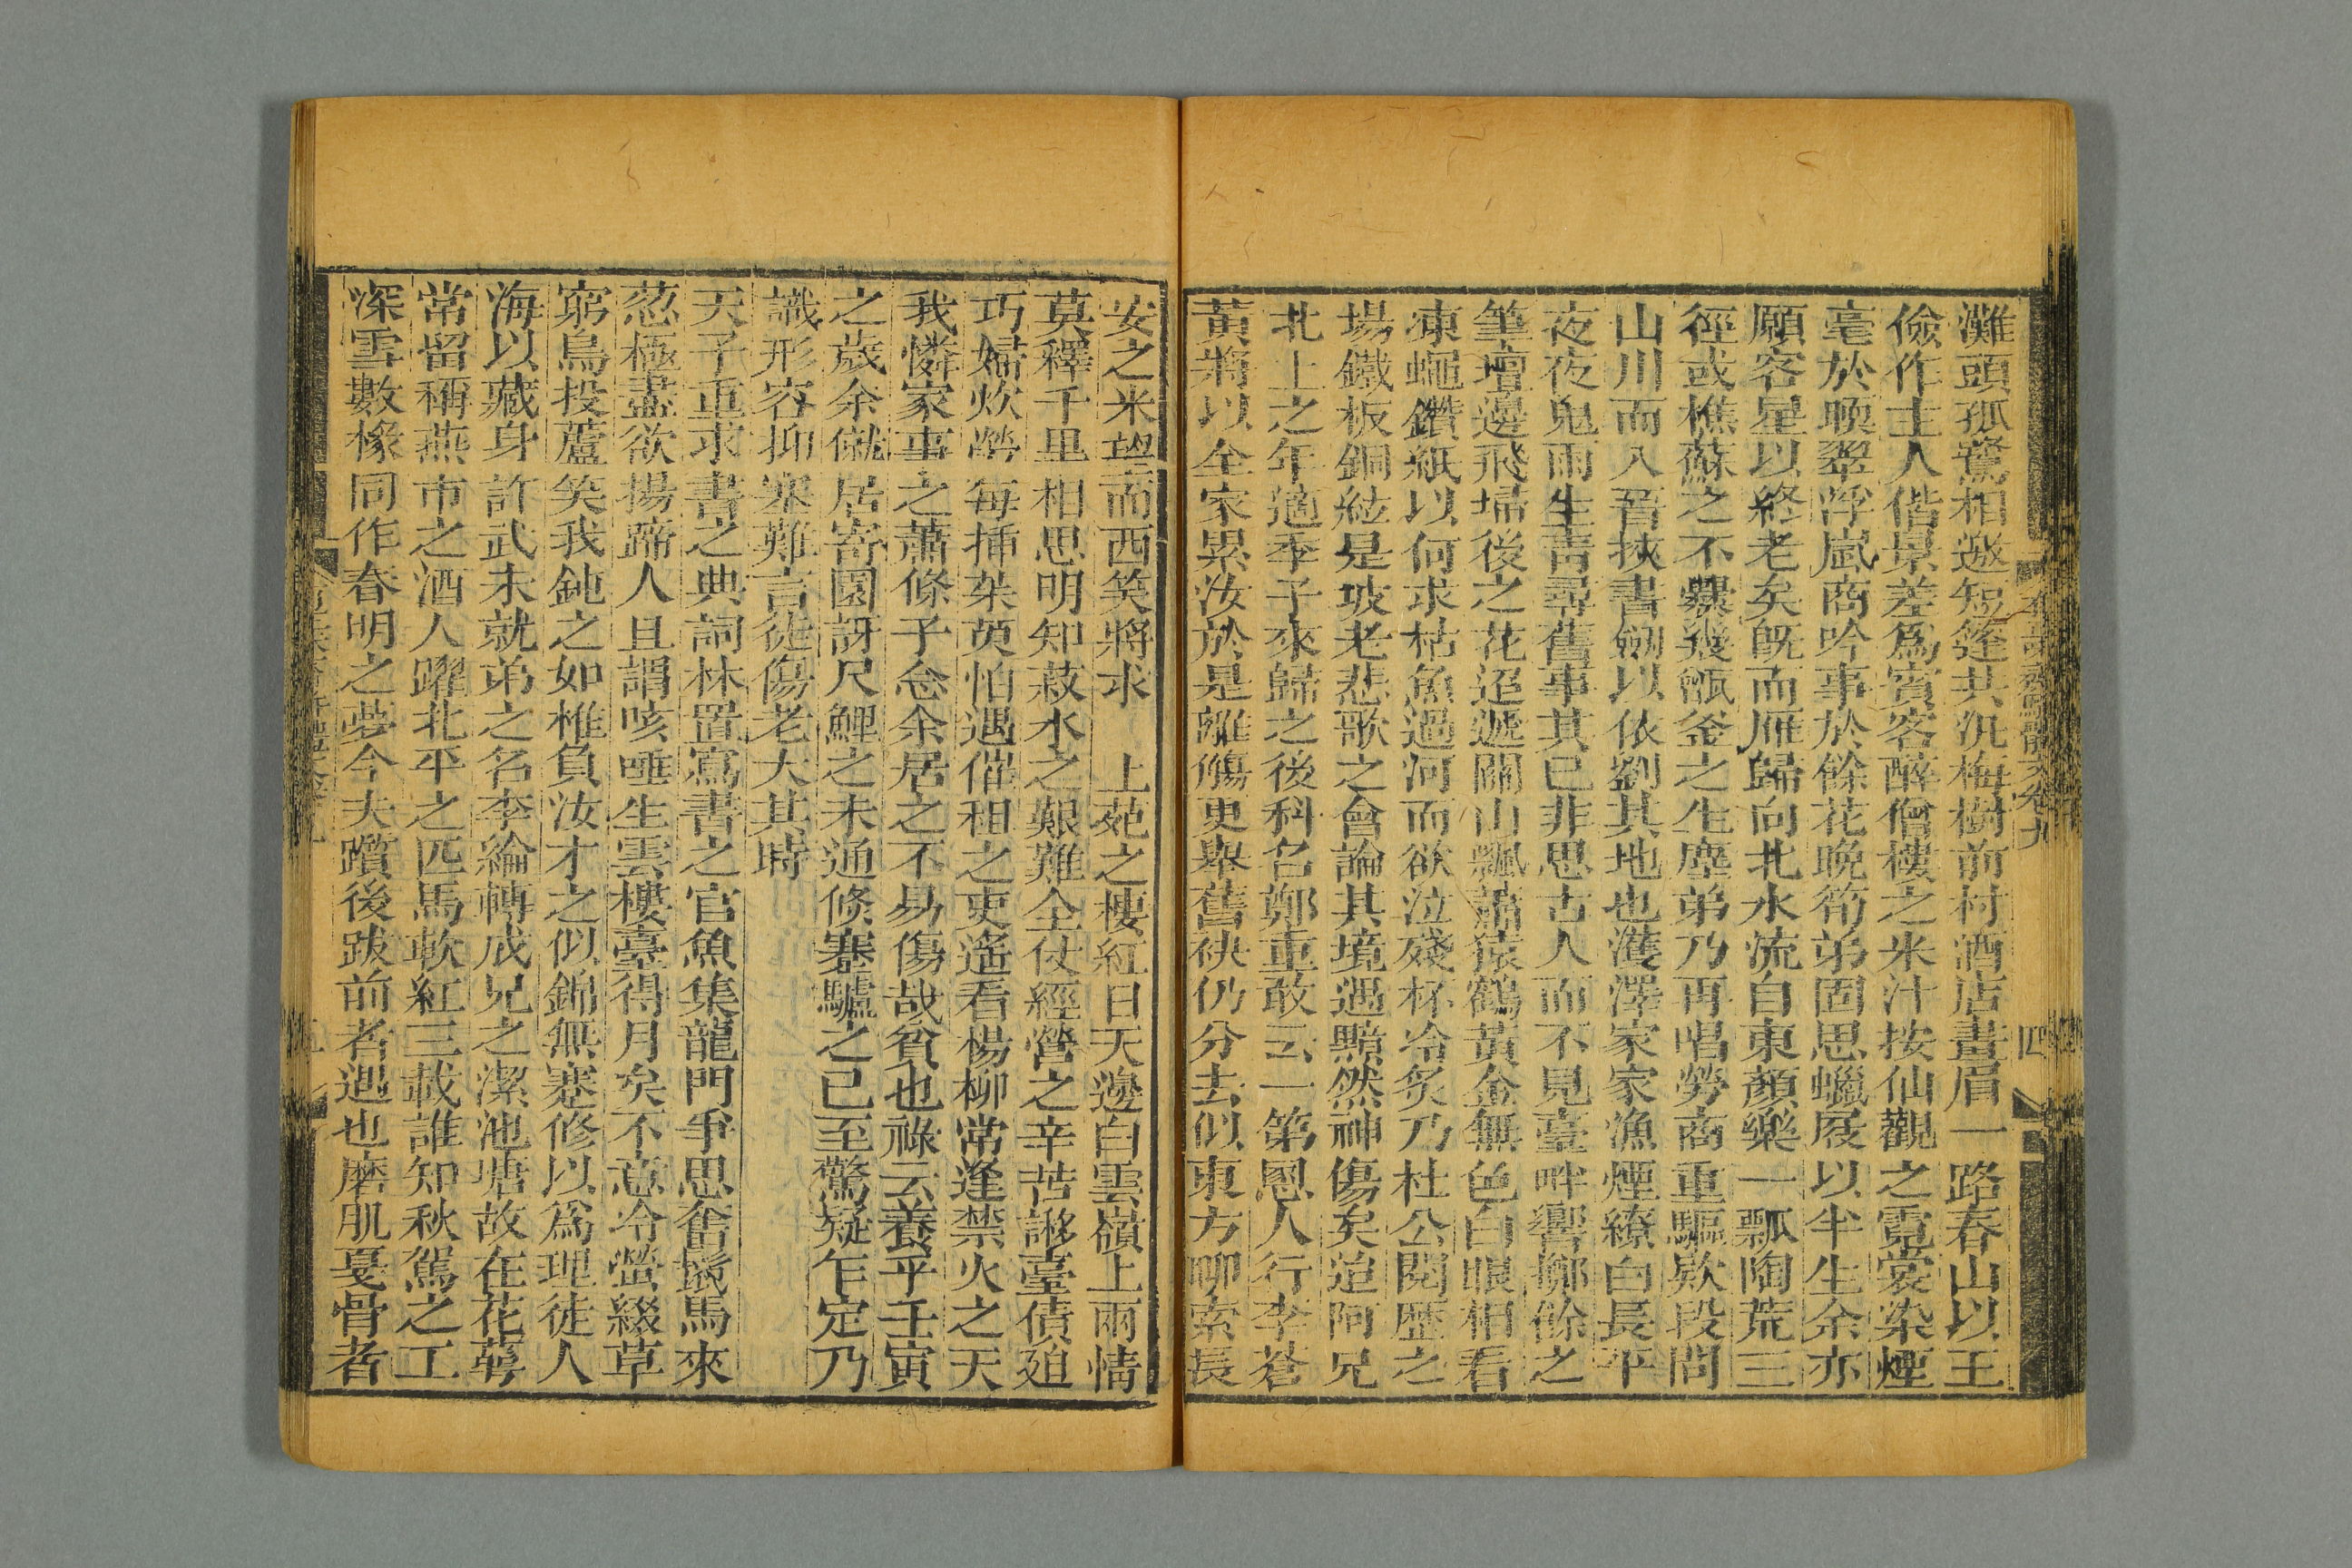 灘頭孤鷺相邀短篷共汎梅樹前村酒店畫眉一路春山以王
儉作主人偕景差爲賓客醉僧樓之米汁按仙觀之霓裳染煙
毫於晚翠浮嵐商吟事於餘花晚筍弟固思蠟屐以半生余亦
願客星以終老矣旣而雁歸向北水流自東顏樂一瓢陶荒三
徑或樵蘇之不爨幾甑釜之生塵弟乃再唱勞商重驅欵段問
山川而入晉挾書劒以依劉其地也濩澤家家漁煙繚白長平
夜夜鬼雨生靑尋舊事其已非思古人而不見臺畔響擲餘之
筆壇邊飛埽後之花迢遞關山飄蕭猿鶴黃金無色白眼相看
凍蠅鑽紙以何求枯魚過河而欲泣殘杯冷炙乃杜公閱歷之
場鐵板銅絃是坡老悲歌之會論其境遇黯然神傷矣迨阿兄
北上之年適季子來歸之後科名鄭重敢云一第恩人行李蒼
黃將以全家累汝於是離觴更舉舊袂仍分去似東方聊索長
安之米望而西笑將求 上苑之櫻紅日天邊白雲嶺上兩情
莫釋千里相思明知菽水之艱難全仗經營之辛苦謻臺債廹
巧婦炊勞每揷茱萸怕遇催租之吏遙看楊柳常逢禁火之天
我憐家事之蕭條子念余居之不易傷哉貧也祿云養乎壬寅
之歲余僦居寄園訝尺鯉之未通倐蹇驢之已至驚疑乍定乃
識形容抑塞難言徒傷老大其時
天子重求書之典詞林置寫書之官魚集龍門爭思奮鬛馬來
苑極盡欲揚蹄人且謂咳唾生雲樓臺得月矣不意冷螢綴草
窮鳥投蘆笑我鈍之如椎負汝才之似錦無蹇修以爲理徒人
海以藏身許武未就弟之名李綸轉成兄之潔池塘故在花萼
常留稱燕市之酒人躍北平之匹馬軟紅三載誰知秋駕之工
深雪數椽同作春明之夢今夫躓後跋前者遇也磨肌戛骨者